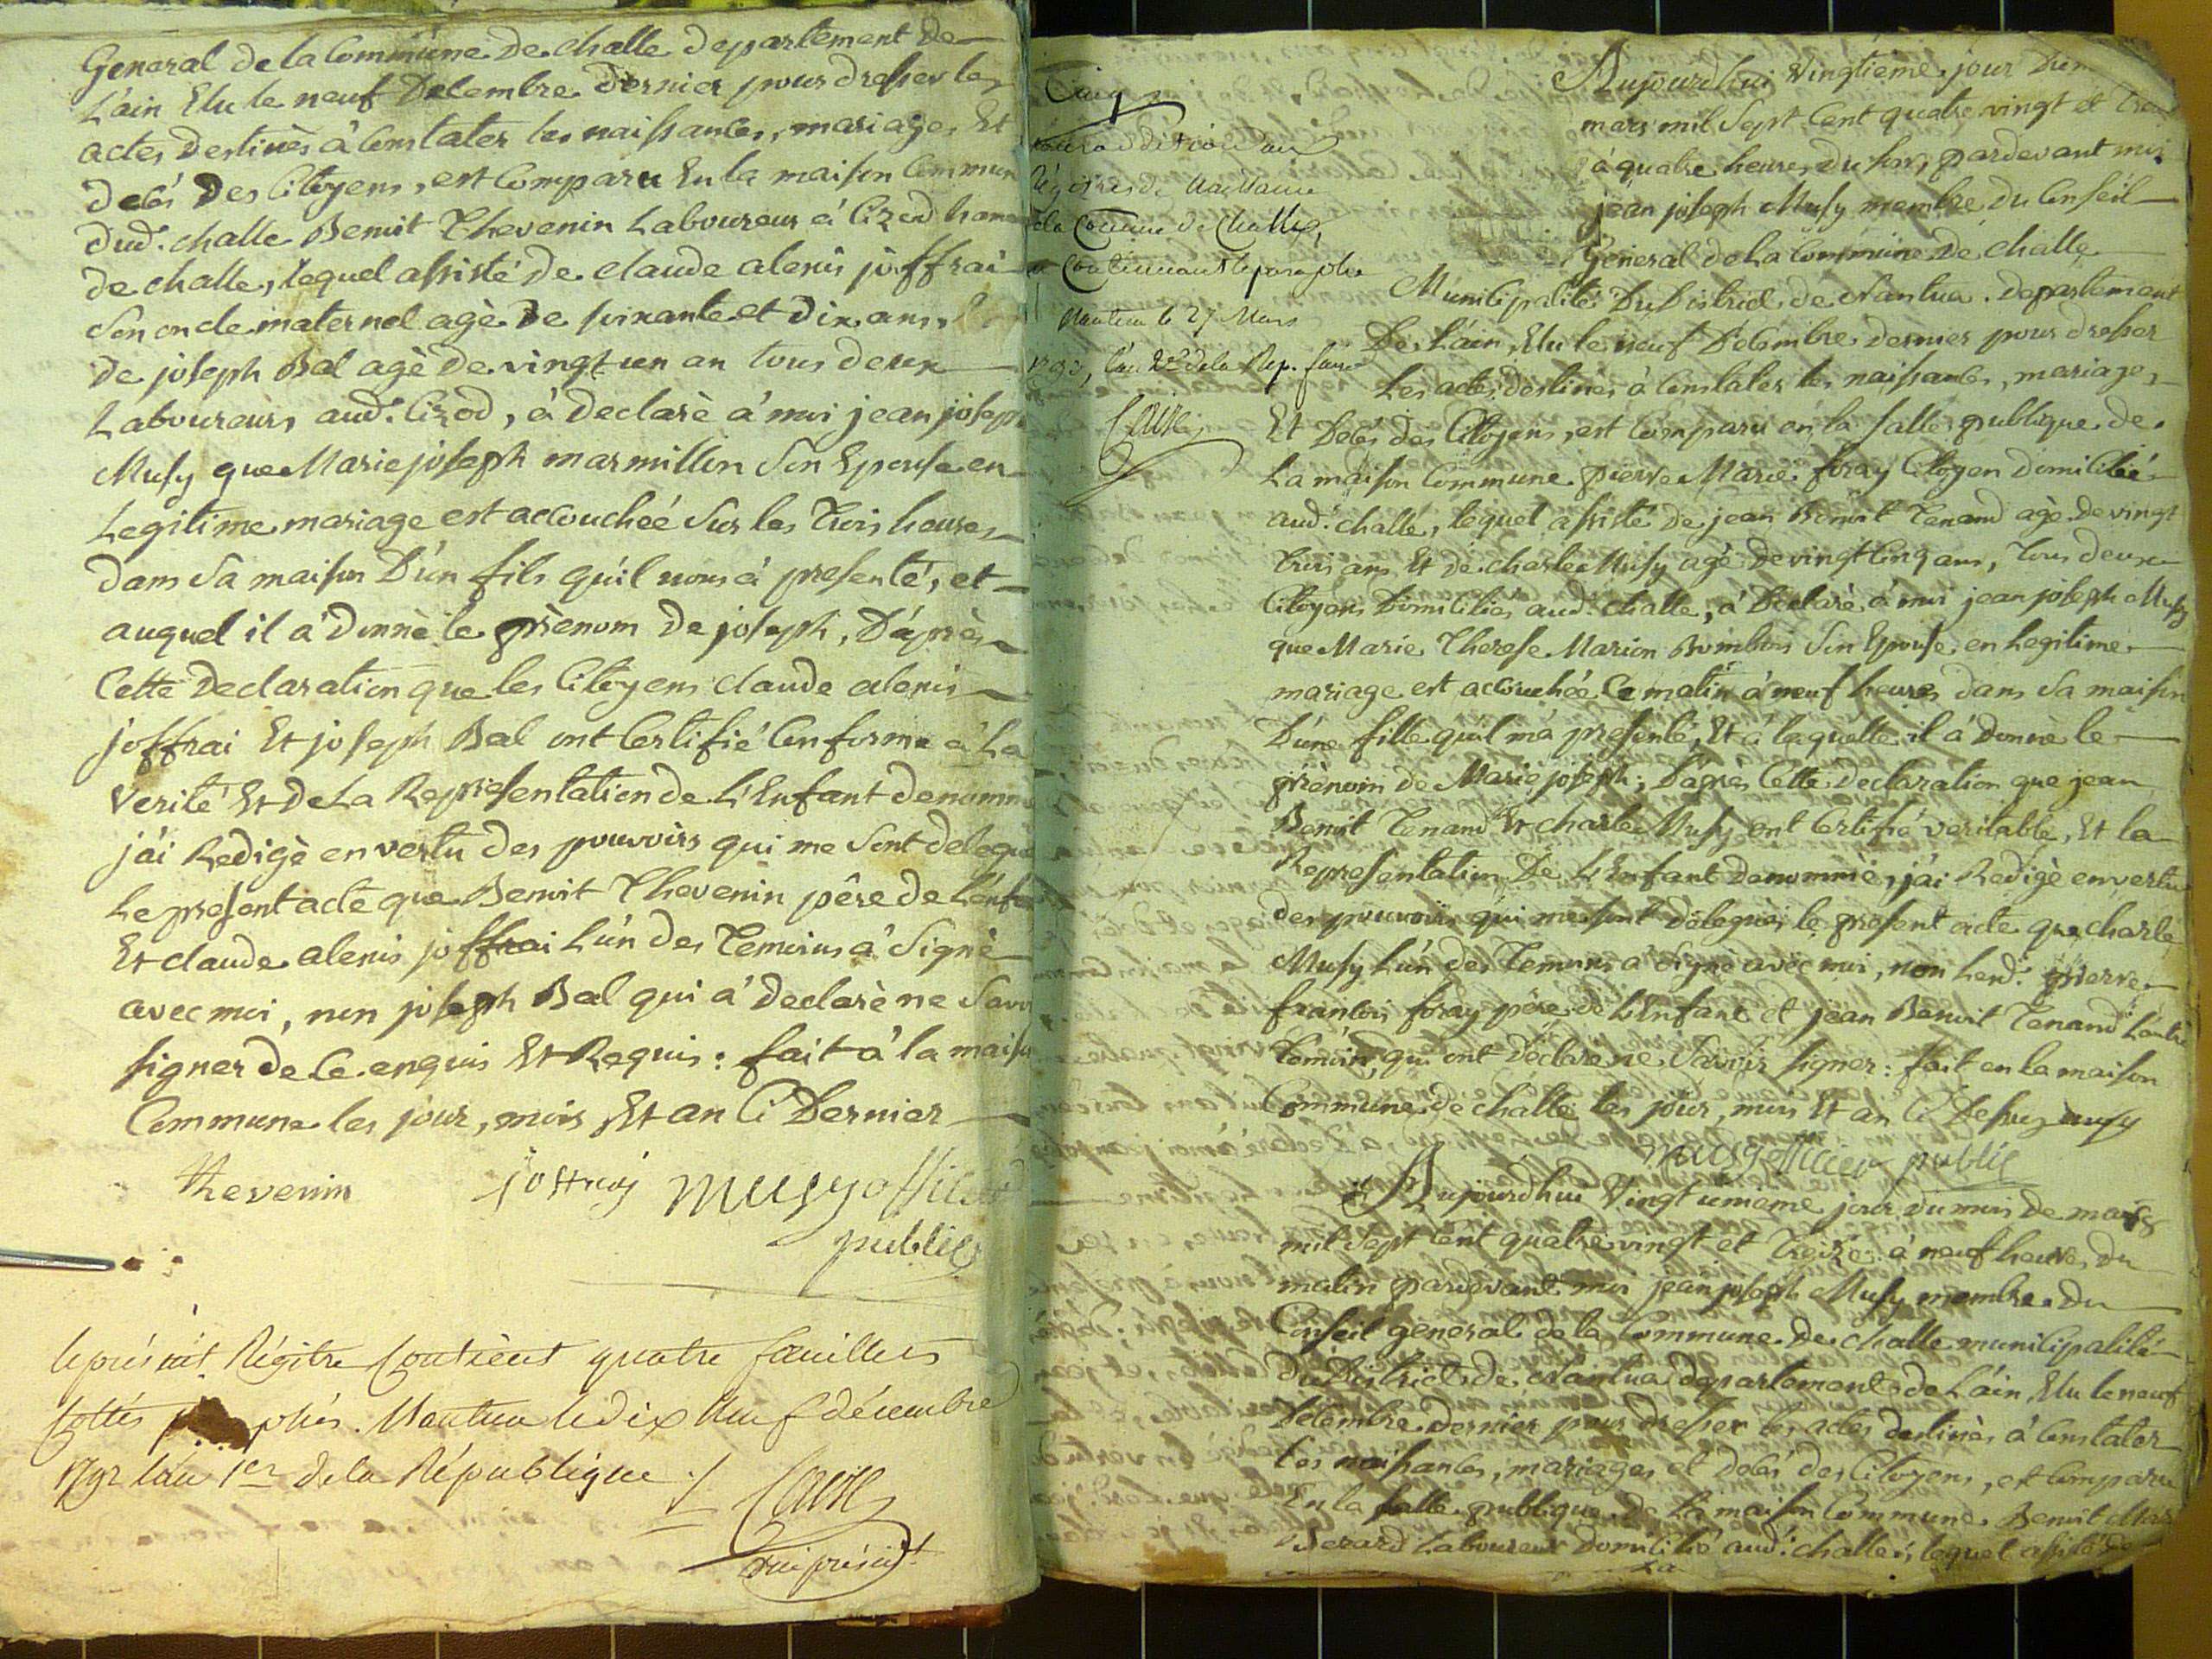 General de la Commune de challe departement de
L'ain Elu le neuf Decembre dernier pour dresser les
actes destinès à Constater les naissances, mariages Et
decés des Citoyens, est Comparu En la maison Commun
dud. challe Benoit Thevenin Laboureur à Cizod ham
de challe, lequel assisté de claude alexis joffrai
son oncle maternel agè de soixante et dix ans,
de joseph Bal agè de vingt un an tous deux
Laboureurs aud. Cizod, à declarè à moi jean joseph
Musy que Marie joseph marmillon son Epouse en
Legitime mariage est accouchéé sur les trois heures
dans sa maison D'ún fils qu'il nous à presenté, et
auquel il à donnè le prènom de joseph, D'áprès
Cette declaration que les Citoyens claude alexis
joffrai Et joseph Bal ont Certifié Conforme à La
Verité Et de La Representation de L'Enfant denomm
j'ái Redigè en vertu des pouvoirs qui me sont delegu
Le present acte que Benoit Thevenin pêre de L'enfa
Et claude alexis joffrai L'ún des Temoins à signè
avec moi, non joseph Bal qui à declarè ne savo
signer de Ce enquis Et Requis : fait à la maiso
Commune les jour, mois Et an Ci Dernier
thevenin joffray musy officier
public
le présent Régitre Contient quatre feuillets
Cottés phés. Nantua le dix neuf décembre
1792 l'an 1er de la République ./.
président
Registres de Naissance
de la Commune de Challe,
Nantua le 27 Mars
1793, l'an 2d de la Rep. franc
Aujourd'hui Vingtieme jour Du m
mars mil sept Cent quatre vingt et
à quatre heures du soir, pardevant moi
jean joseph Musy membre du Conseil
General de La Commune de challe
Municipalité Du District de Nantua. departement
De L'áin, Elu le neuf Décembre dernier pour dresser
Les actes destinès à Constater les naissances, mariages
Et Decés des Citoyens, est Comparu en la salle publique de
La maison Commune pierre Marie foray Citoyen domicilié
aud. challe, lequel assisté de jean Benoit Tenand agè de vingt
trois ans Et de charle Musy agè de vingt Cinq ans, tous deux
Citoyens Domiciliés aud. challe, à Déclarè à moi jean joseph Musy
que Marie Therese Marion Bombois son Epouse en Legitime
mariage est accouchéé Ce matin à neuf heures dans sa maison
D'úne fille qu'il m'à presenté, Et à laquelle il à Donnè le
prènom de Marie joseph ; D'apres Cette declaration que jean
Benoit Tenand Et charle Musy ont Certifié veritable, Et la
Representation De L'Enfant denommèe, j'ái Redigè en vertu
des pouvoirs qui me sont délegués le present acte que charle
Musy L'ún des Temoins à signè avec moi, non Led. pierre
francois foray pêre de L'Enfant et jean Benoit Tenand L'autre
Temoin, qui ont déclaré ne savoir signer : fait en la maison
Commune de challe les jour, mois Et an Ci Dessus musy
musy officier public
Aujourd'hui Vingt unieme jour du mois de mars
mil sept Cent quatre vingt et Treize à neuf heures du
matin pardevant moi jean joseph Musy membre du
Conseil general de la Commune de challe municipalité
du District de Nantua departement de L'áin, Elu le neuf
Décembre dernier pour dresser les actes destinès à Constater
les naissances, mariages et decés des Citoyens, est Comparu
En la salle publique de la maison Commune Benoit
Laboureur domicilié aud. challe, lequel assisté de